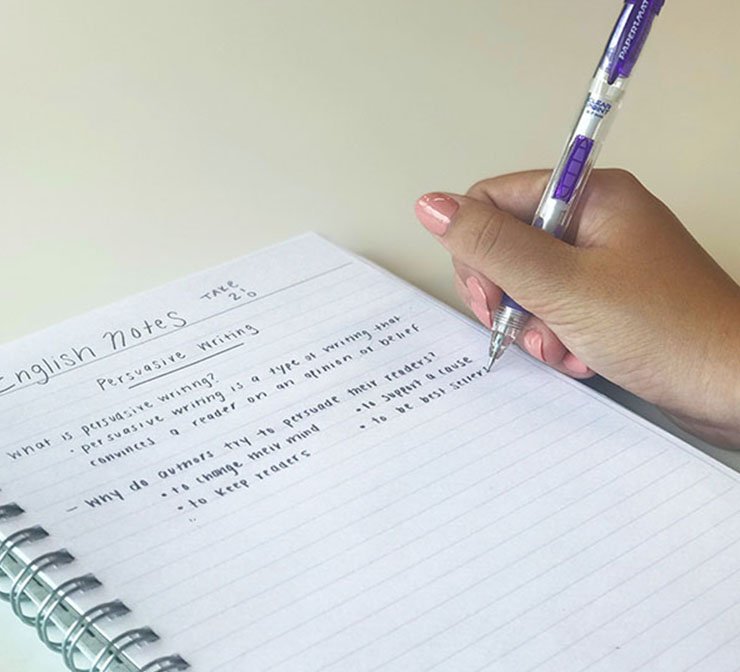 English notes
TAKE
2:0
Persuasive writing
what is persuasive writing?
• persuasive writing is a type of writing that
convinces a reader on an opinion or belief
- why do authors try to persuade their readers?
• to change their mind
• to support a cause
• to keep readers
• to be best sellers
PAPERMAT
CLEAR
POINT